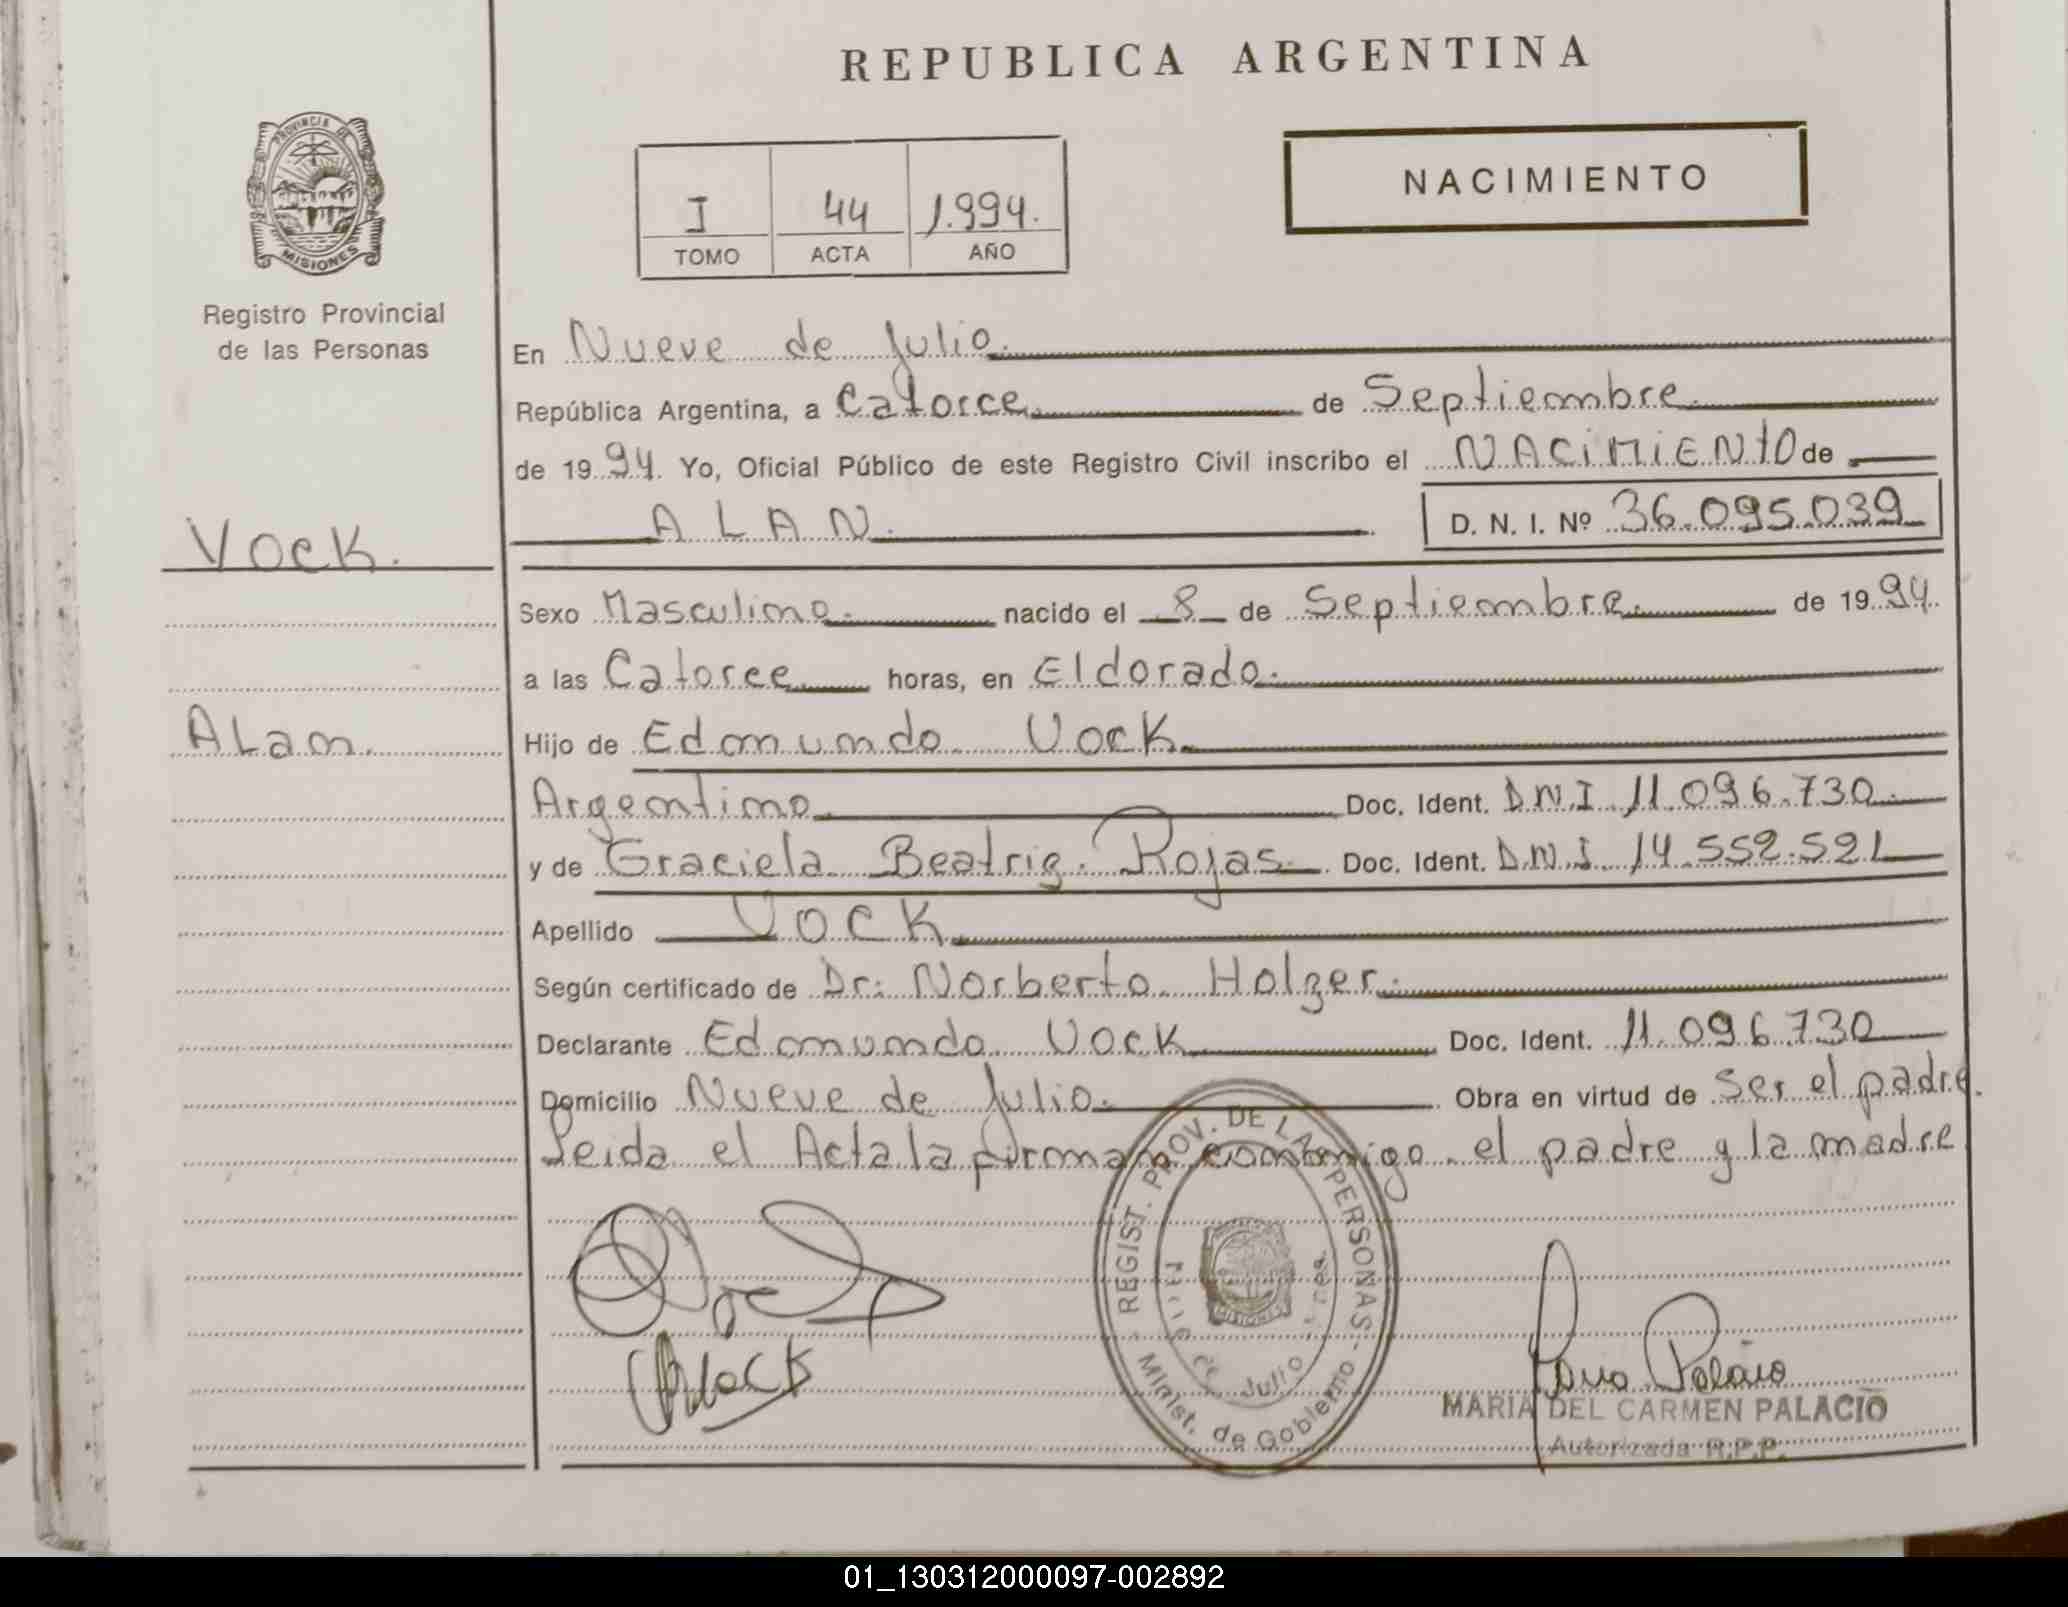 REPUBLICA ARGENTINA
PROVINCIA DE
MISIONES
Registro Provincial
de las Personas
I 44 1.994.
TOMO ACTA AÑO
NACIMIENTO
En Nueve de Julio.
República Argentina, a Catorce de Septiembre.
de 1994. Yo, Oficial Público de este Registro Civil inscribo el NACIMIENTO de
ALAN. D. N. I. Nº 36.095.039
Vock.
Alan.
Sexo Masculino. nacido el 8 de Septiembre. de 1994.
a las Catorce horas, en Eldorado.
Hijo de Edmundo Vock.
Argentino Doc. Ident. DNI 11.096.730
y de Graciela Beatriz Rojas Doc. Ident. DNI 14.552.521
Apellido VOCK
Según certificado de Dr: Norberto Holzer.
Declarante Edmundo Vock Doc. Ident. 11.096.730
Domicilio Nueve de Julio. Obra en virtud de Ser el padre.
Leida el Acta la firman conmigo el padre y la madre
REGIST. PROV. DE LAS PERSONAS
Minist. de Gobierno
de Julio
MISIONES
MARIA DEL CARMEN PALACIO
Autorizada R.P.P.
01_130312000097-002892